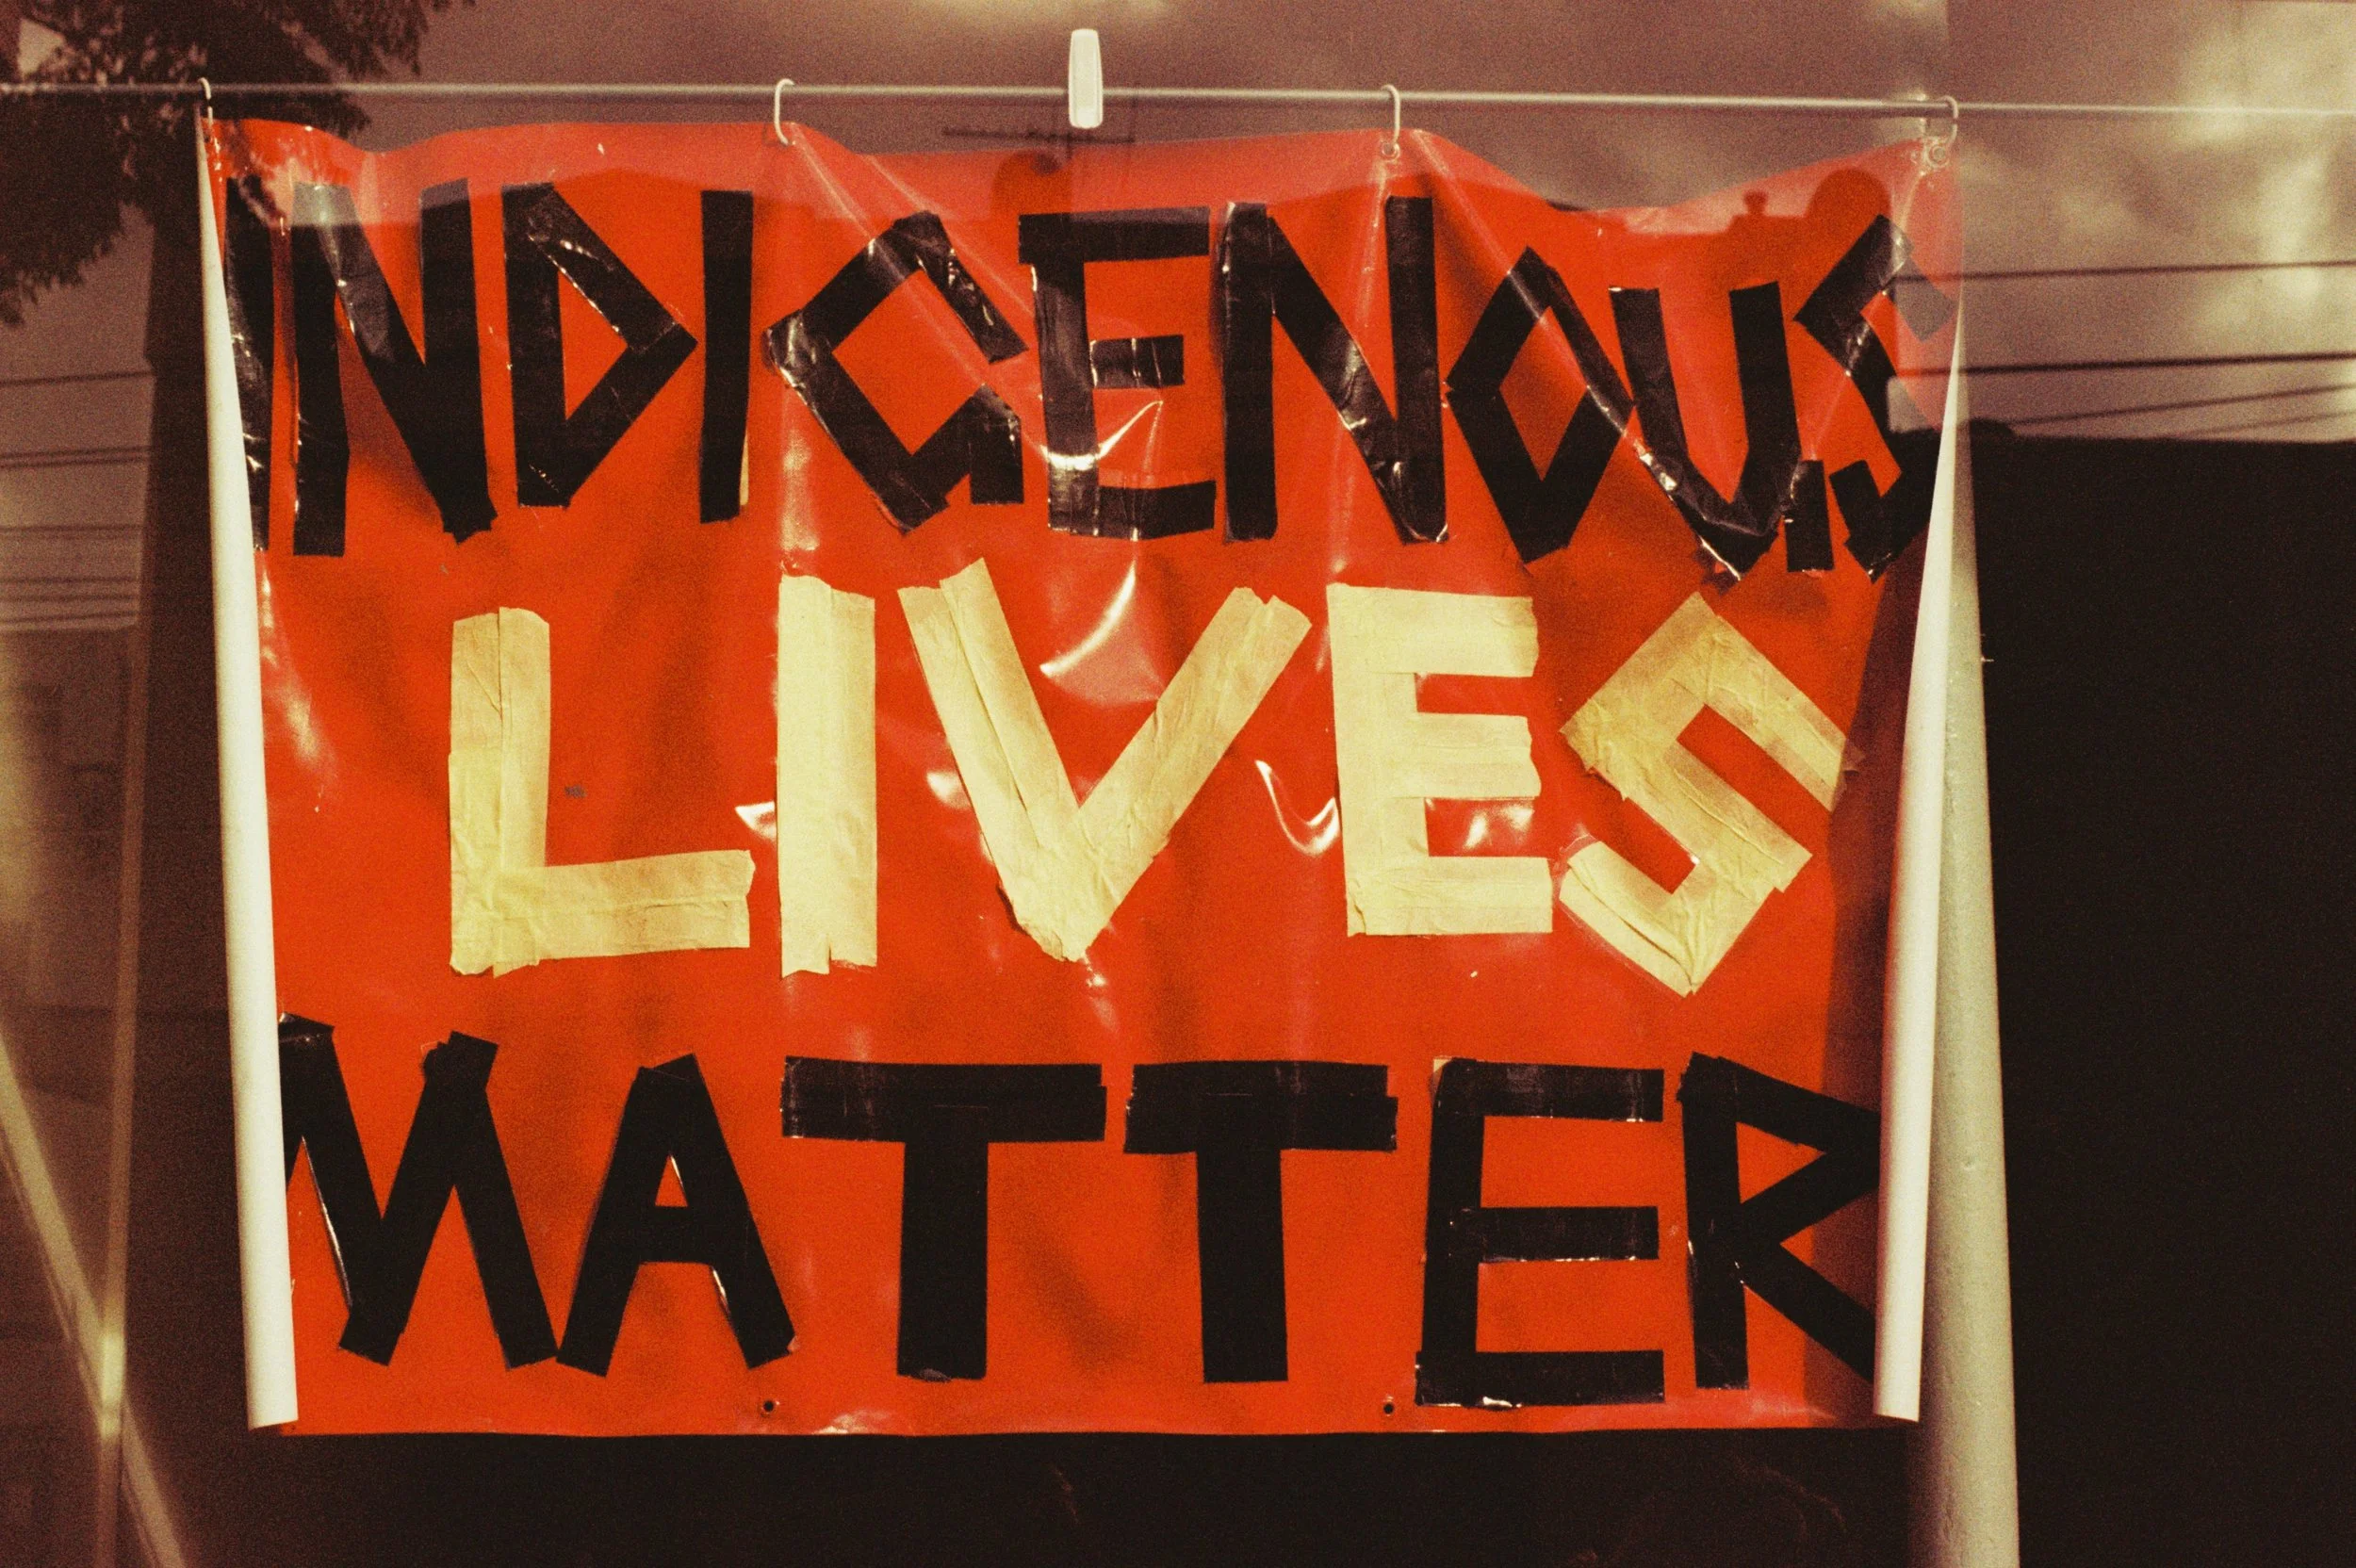 INDIGENOUS
LIVES
MATTER